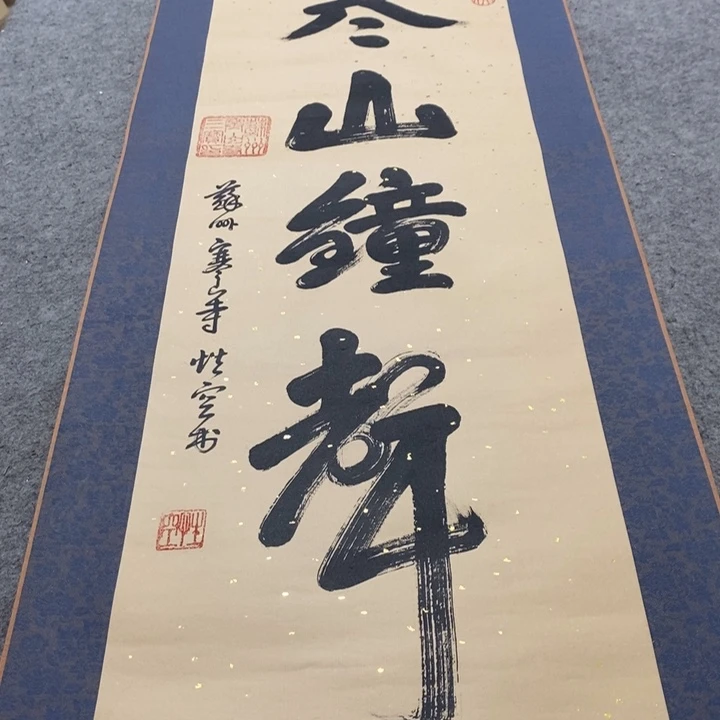 寒山鐘聲
蘇州寒山寺性空書